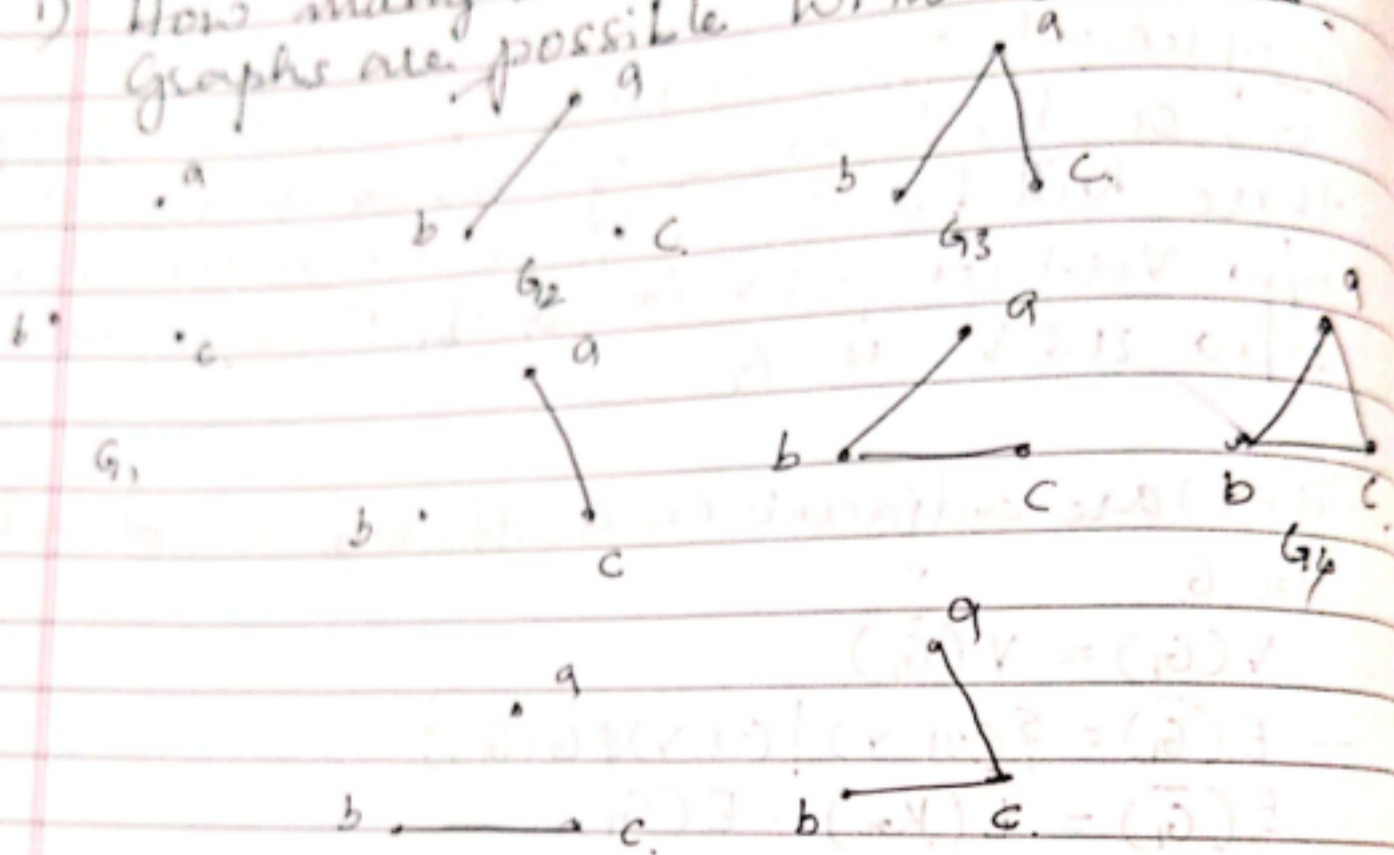 1) How many
Graphs are possible
a
b
c
G1
a
b
c.
G2
a
b
c
a
b
c.
a
b
c.
G3
a
b
c
a
b
c.
a
b
c
G4